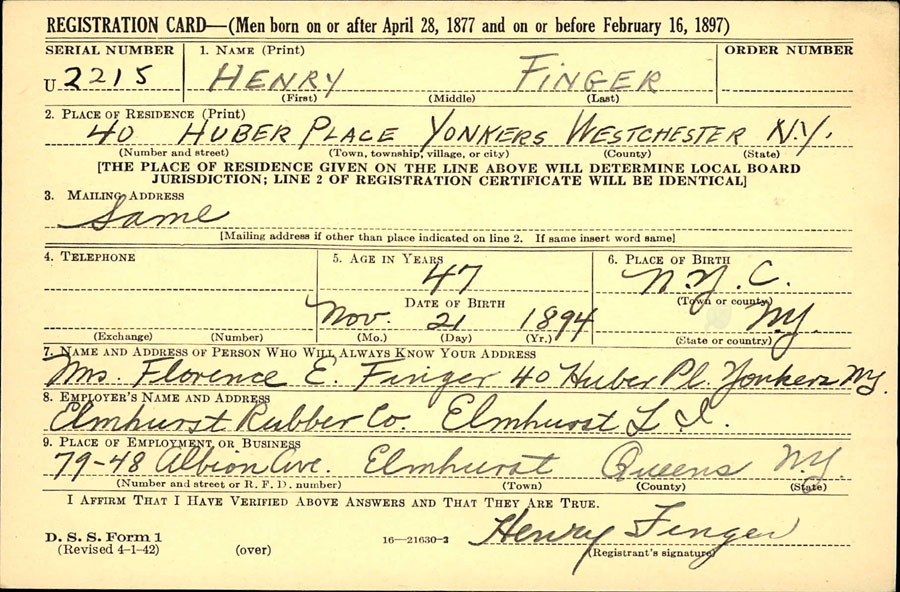 REGISTRATION CARD—(Men born on or after April 28, 1877 and on or before February 16, 1897)
SERIAL NUMBER 1. NAME (Print) ORDER NUMBER
U 2215 HENRY FINGER
(First) (Middle) (Last)
2. PLACE OF RESIDENCE (Print)
40 HUBER PLACE YONKERS WESTCHESTER N.Y.
(Number and street) (Town, township, village, or city) (County) (State)
[THE PLACE OF RESIDENCE GIVEN ON THE LINE ABOVE WILL DETERMINE LOCAL BOARD
JURISDICTION; LINE 2 OF REGISTRATION CERTIFICATE WILL BE IDENTICAL]
3. MAILING ADDRESS
Same
[Mailing address if other than place indicated on line 2. If same insert word same]
4. TELEPHONE 5. AGE IN YEARS 6. PLACE OF BIRTH
47 N.Y.C.
(Town or county)
DATE OF BIRTH
Nov. 21 1894 N.Y.
(Exchange) (Number) (Mo.) (Day) (Yr.) (State or country)
7. NAME AND ADDRESS OF PERSON WHO WILL ALWAYS KNOW YOUR ADDRESS
Mrs. Florence E. Finger 40 Huber Pl. Yonkers N.Y.
8. EMPLOYER'S NAME AND ADDRESS
Elmhurst Rubber Co. Elmhurst L I.
9. PLACE OF EMPLOYMENT OR BUSINESS
79-48 Albion Ave. Elmhurst Queens N.Y.
(Number and street or R. F. D. number) (Town) (County) (State)
I AFFIRM THAT I HAVE VERIFIED ABOVE ANSWERS AND THAT THEY ARE TRUE.
Henry Finger
D. S. S. Form 1
(Revised 4-1-42) (over) 16—21630-2 (Registrant's signature)